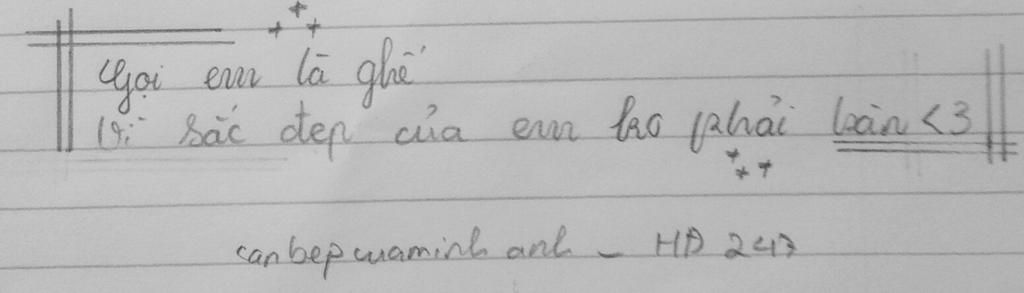 Gọi em là ghế
Vì sắc đẹp của em ko phải bàn <3
canbepcuaminh anh - HD 247